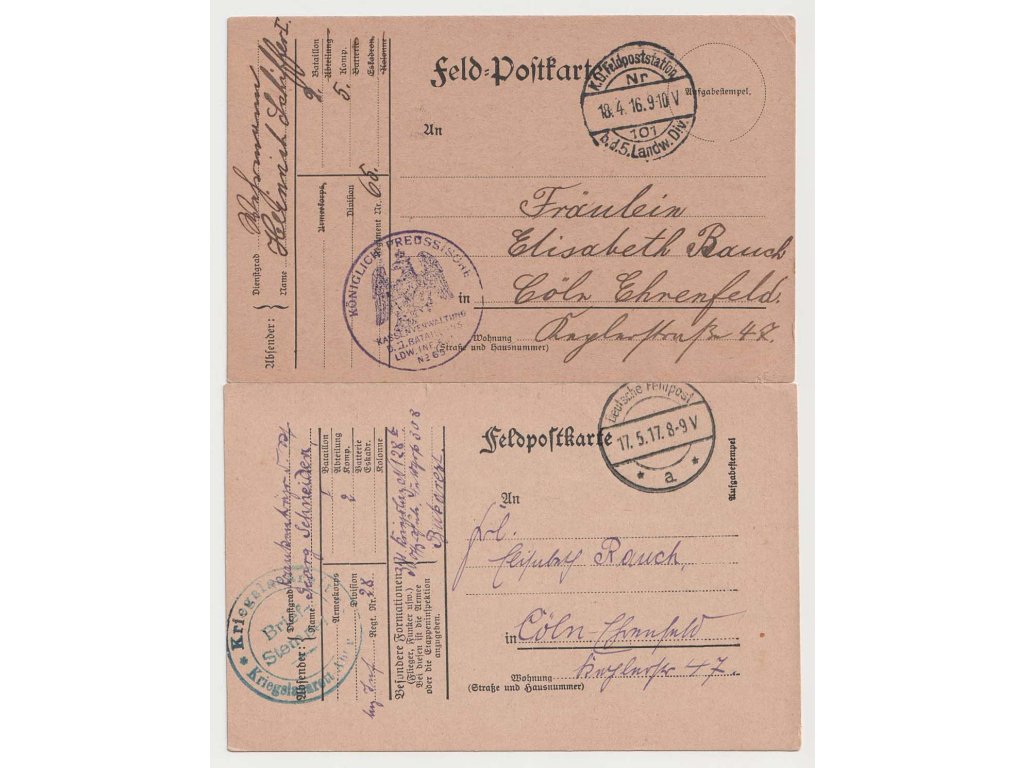 Feld-Postkarte
K.D. Feldpoststation
Nr
18.4.16.9-10 V
101
b.d.5. Landw. Div.
Aufgabestempel.
An
Fräulein
Elisabeth Rauch
in Cöln Ehrenfeld.
Wohnung
(Straße und Hausnummer)
47.
Absender:
Dienstgrad Wehrmann
Name Heinrich Schiffer I.
2. Bataillon
Abteilung
5. Komp.
Batterie
Eskadron
Kolonne
Armeekorps
Division
Regiment Nr. 65.
KÖNIGLICH PREUSSISCHE
KASSENVERWALTUNG
D. II. BATAILLONS
LDW. INF.
No 65
Feldpostkarte
Deutsche Feldpost
17.5.17.8-9 V
* a *
Aufgabestempel
An
Frl.
Elisabeth Rauch,
in Cöln-Ehrenfeld
Wohnung 47.
(Straße und Hausnummer)
Absender:
Dienstgrad
Name Georg Schneider,
I Bataillon
Abteilung
2 Komp.
Batterie
Eskadr.
Kolonne
Armeekorps
Division
Inf. Regt. Nr. 28
Besondere Formationen:
(Flieger, Funker usw.)
Bei diesen ist die Armee
oder die Etappeninspektion
anzugeben.
Bukarest.
Brief-
Stempel
* Kriegslazarett